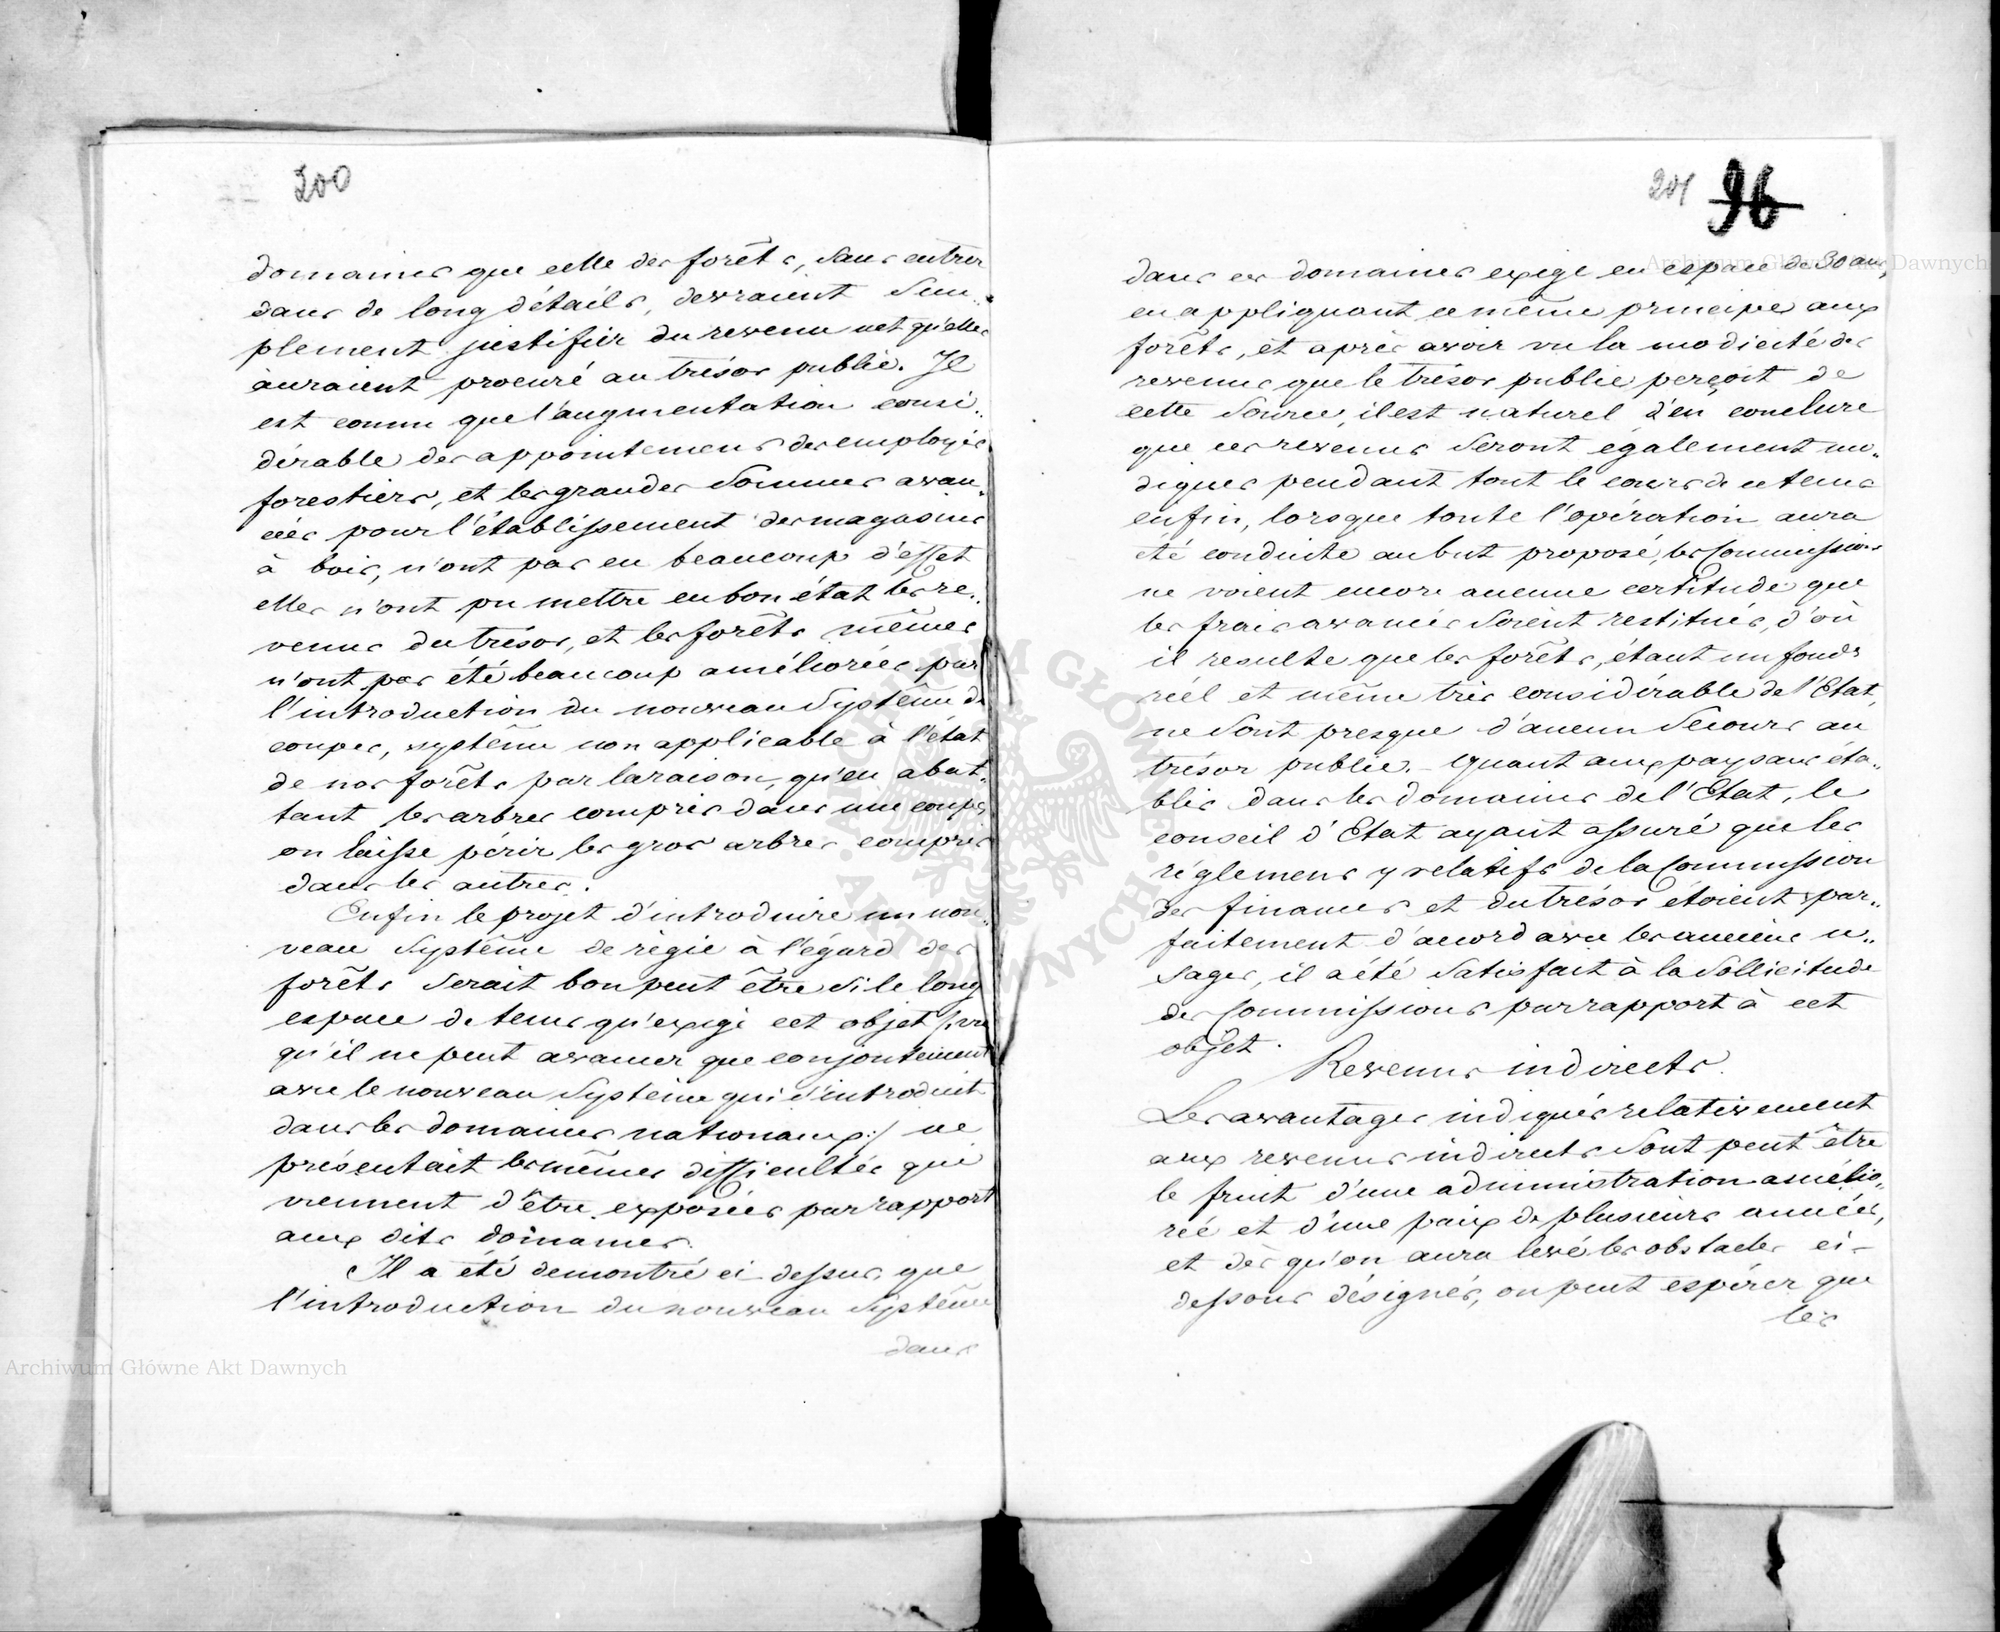 200
domaines que celle des forêts, sans entrer
dans de long détails, devraient sim„
plement justifier du revenu net qu'elles
auraient procuré au trésor public. Il
est connu que l'augmentation consi„
dérable des appointemens des employés
forestiers, et les grandes sommes avan„
cées pour l'établissement des magasins
à bois, n'ont pas eu beaucoup d'effet
elles n'ont pu mettre en bon état les re„
venus du trésor, et les forêts mêmes
n'ont pas été beaucoup améliorées par
l'introduction du nouveau système de
coupes, système non applicable à l'état
de nos forêts par la raison, qu'en abat„
tant les arbres compris dans une coupe,
on laisse périr les gros arbres compris
dans les autres.
Enfin le projet d'introduire un nou„
veau système de régie à l'égard des
forêts serait bon peut être si le long
espace de tems qu'exige cet objet /:vu
qu'il ne peut avancer que conjointement
avec le nouveau système qui s'introduit
dans les domaines nationaux:/ ne
présentait les mêmes difficultés que
viennent d'être exposées par rapport
aux dits domaines.
Il a été demontré ci dessus que
l'introduction du nouveau système
dans
201 96
dans ces domaines exige en espace de 30 ans,
en appliquant ce même principe aux
forêts, et après avoir vu la modicité des
revenus que le trésor public perçoit de
cette source, il est naturel d'en conclure
que ces revenus seront également mo„
diques pendant tout le cours de ce tems
enfin, lorsque toute l'opération aura
été conduite au but proposé, les Commissions
ne voient encore aucune certitude que
les frais avancés soient restitués, d'où
il resulte que les forêts, étant un fonds
réel et même très considérable de l'Etat,
ne sont presque d'aucun secours au
trésor public. – Quant aux paysans éta„
blis dans les domaines de l'Etat, le
conseil d'Etat ayant assuré que les
réglemens y relatifs de la Commission
des finances et du trésor étoient par„
faitement d'accord avec les anciens u„
sages, il a été satisfait à la sollicitude
des Commissions par rapport à cet
objet.
Revenus indirects.
Les avantages indiqués relativement
aux revenus indirects sont peut être
le fruit d'une administration amélio„
rée et d'une paix de plusieurs années,
et dès qu'on aura levé les obstacles ci-
dessous désignés, on peut espérer que
les
Archiwum Główne Akt Dawnych
Archiwum Główne Akt Dawnych
ARCHIWUM GŁÓWNE AKT DAWNYCH